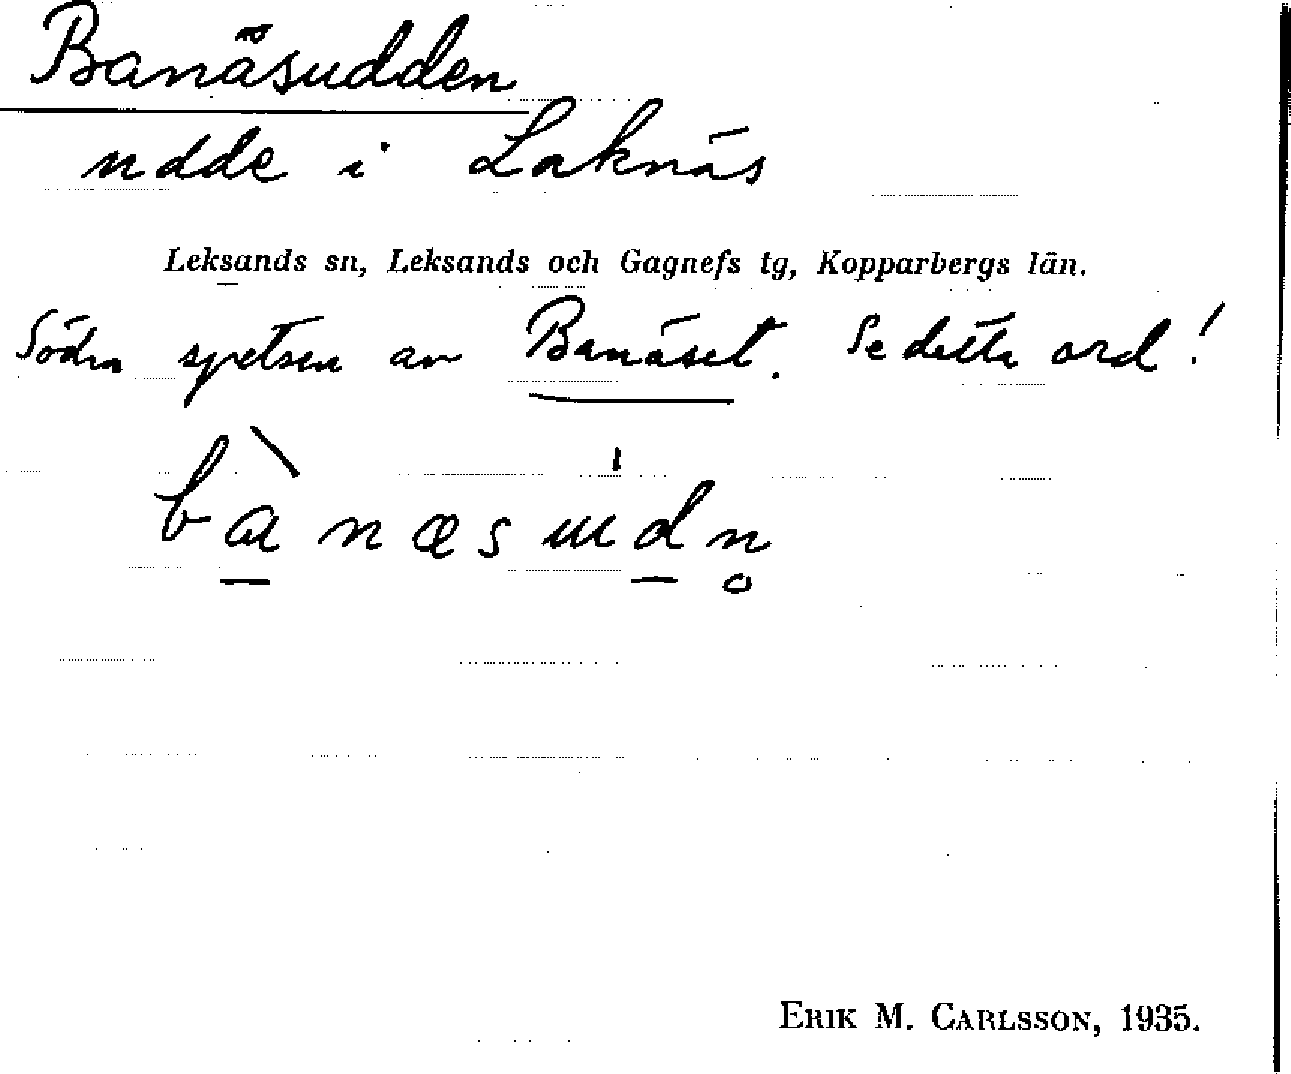 Banäsudden
udde i Laknäs
Leksands sn, Leksands och Gagnefs tg, Kopparbergs län.
Södra spetsen av Banäset. Se detta ord!
bànæsɯdn̥
ERIK M. CARLSSON, 1935.